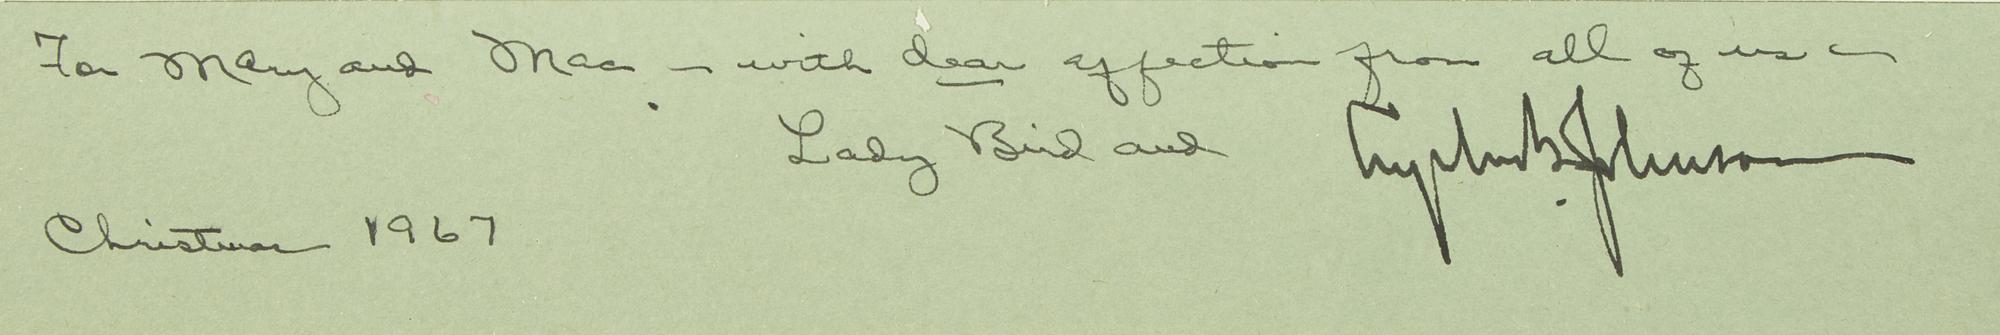 For Mary and Mac — with dear affection from all of us —
Lady Bird and Lyndon B. Johnson
Christmas 1967